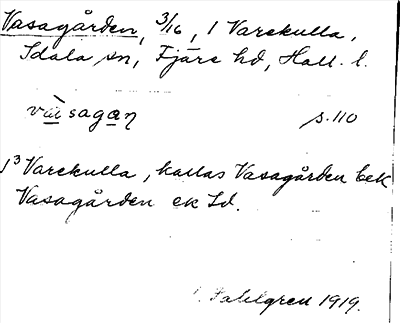 Vasagården, 3/16, 1 Varekulla,
Idala sn, Fjäre hd, Hall. l.
vàsagan̥ s. 110
1³ Varekulla, kallas Vasagården bek
Vasagården ek Id.
Sahlgren 1919.